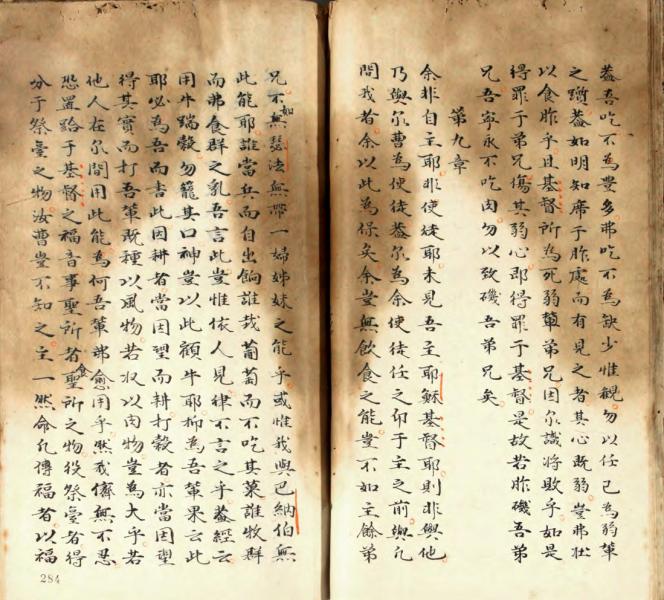 葢吾吃不為豊多弗吃不為缺少惟觀勿以任己為弱輩
之躓葢如明知席于胙處而有見之者其心既弱豈弗壮
以食胙乎且基督所為死弱輩弟兄因尔識将敗乎如是
得罪于弟兄傷其弱心即得罪于基督是故若胙磯吾弟
兄吾寧永不吃肉勿以致磯吾弟兄矣
第九章
余非自主耶非使徒耶未見吾主耶穌基督耶則非與他
乃與尔曹為使徒葢尔為余使徒任之印于主之前與凡
問我者余以此為保矣余豈無飲食之能豈不如主餘弟
兄不如無瑟法無帶一婦姊妹之能乎或惟我與巴納伯無
此能耶誰當兵而自出餉誰栽葡萄而不吃其菓誰牧群
而弗食群之乳吾言此豈惟依人見律不言之乎葢經云
用牛踹穀勿籠其口神豈以此顧牛耶抑為吾輩果云此
耶必為吾而書此因耕者當因望而耕打穀者亦當因望
得其實而打吾輩既種以風物若収以肉物豈為大乎若
他人在尔間用此能為何吾輩弗愈用乎然我儕無不忍
恐置跲于基督之福音事聖所者食聖所之物役祭䑓者得
分于祭䑓之物汝曹豈不知之主一然命凡傳福者以福
284